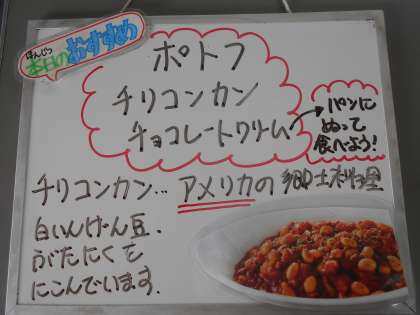 ほんじつ
本日のおすすめ
ポトフ
チリコンカン
チョコレートクリーム
パンに
ぬって
食べよう!
チリコンカン… アメリカの郷土料理
白いんげん豆、
ぶたにくを
にこんでいます。